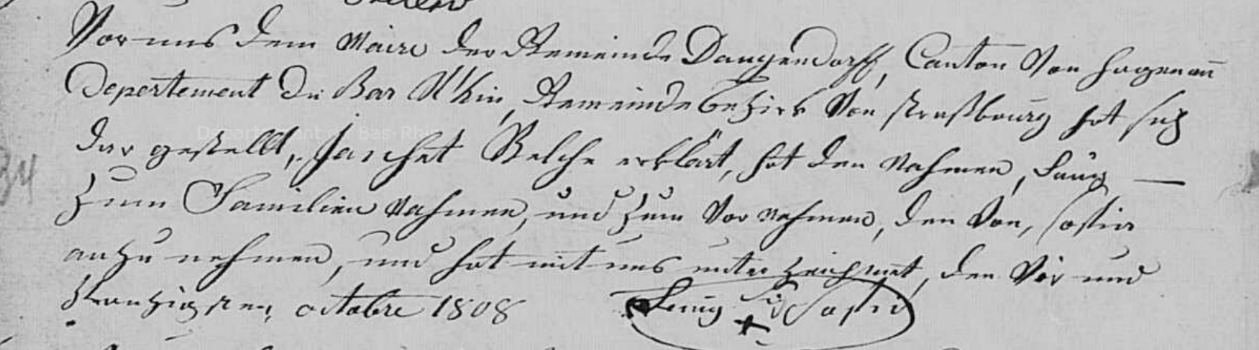 Vor uns dem Maire der Gemeinde Dauendorff, Canton Von Hagenau
Departement du Bas Rhin, Gemeinde bezirk Von Straßbourg hat sich
dar gestellt, Welche erklärt, hat den Nahmen,
Zum Familien Nahmen, und zum Vor nahmen, den Von, Sophia
anzu nehmen, und hat mit uns unter zeichnet, den Vier und
zwanzigsten, octobre 1808